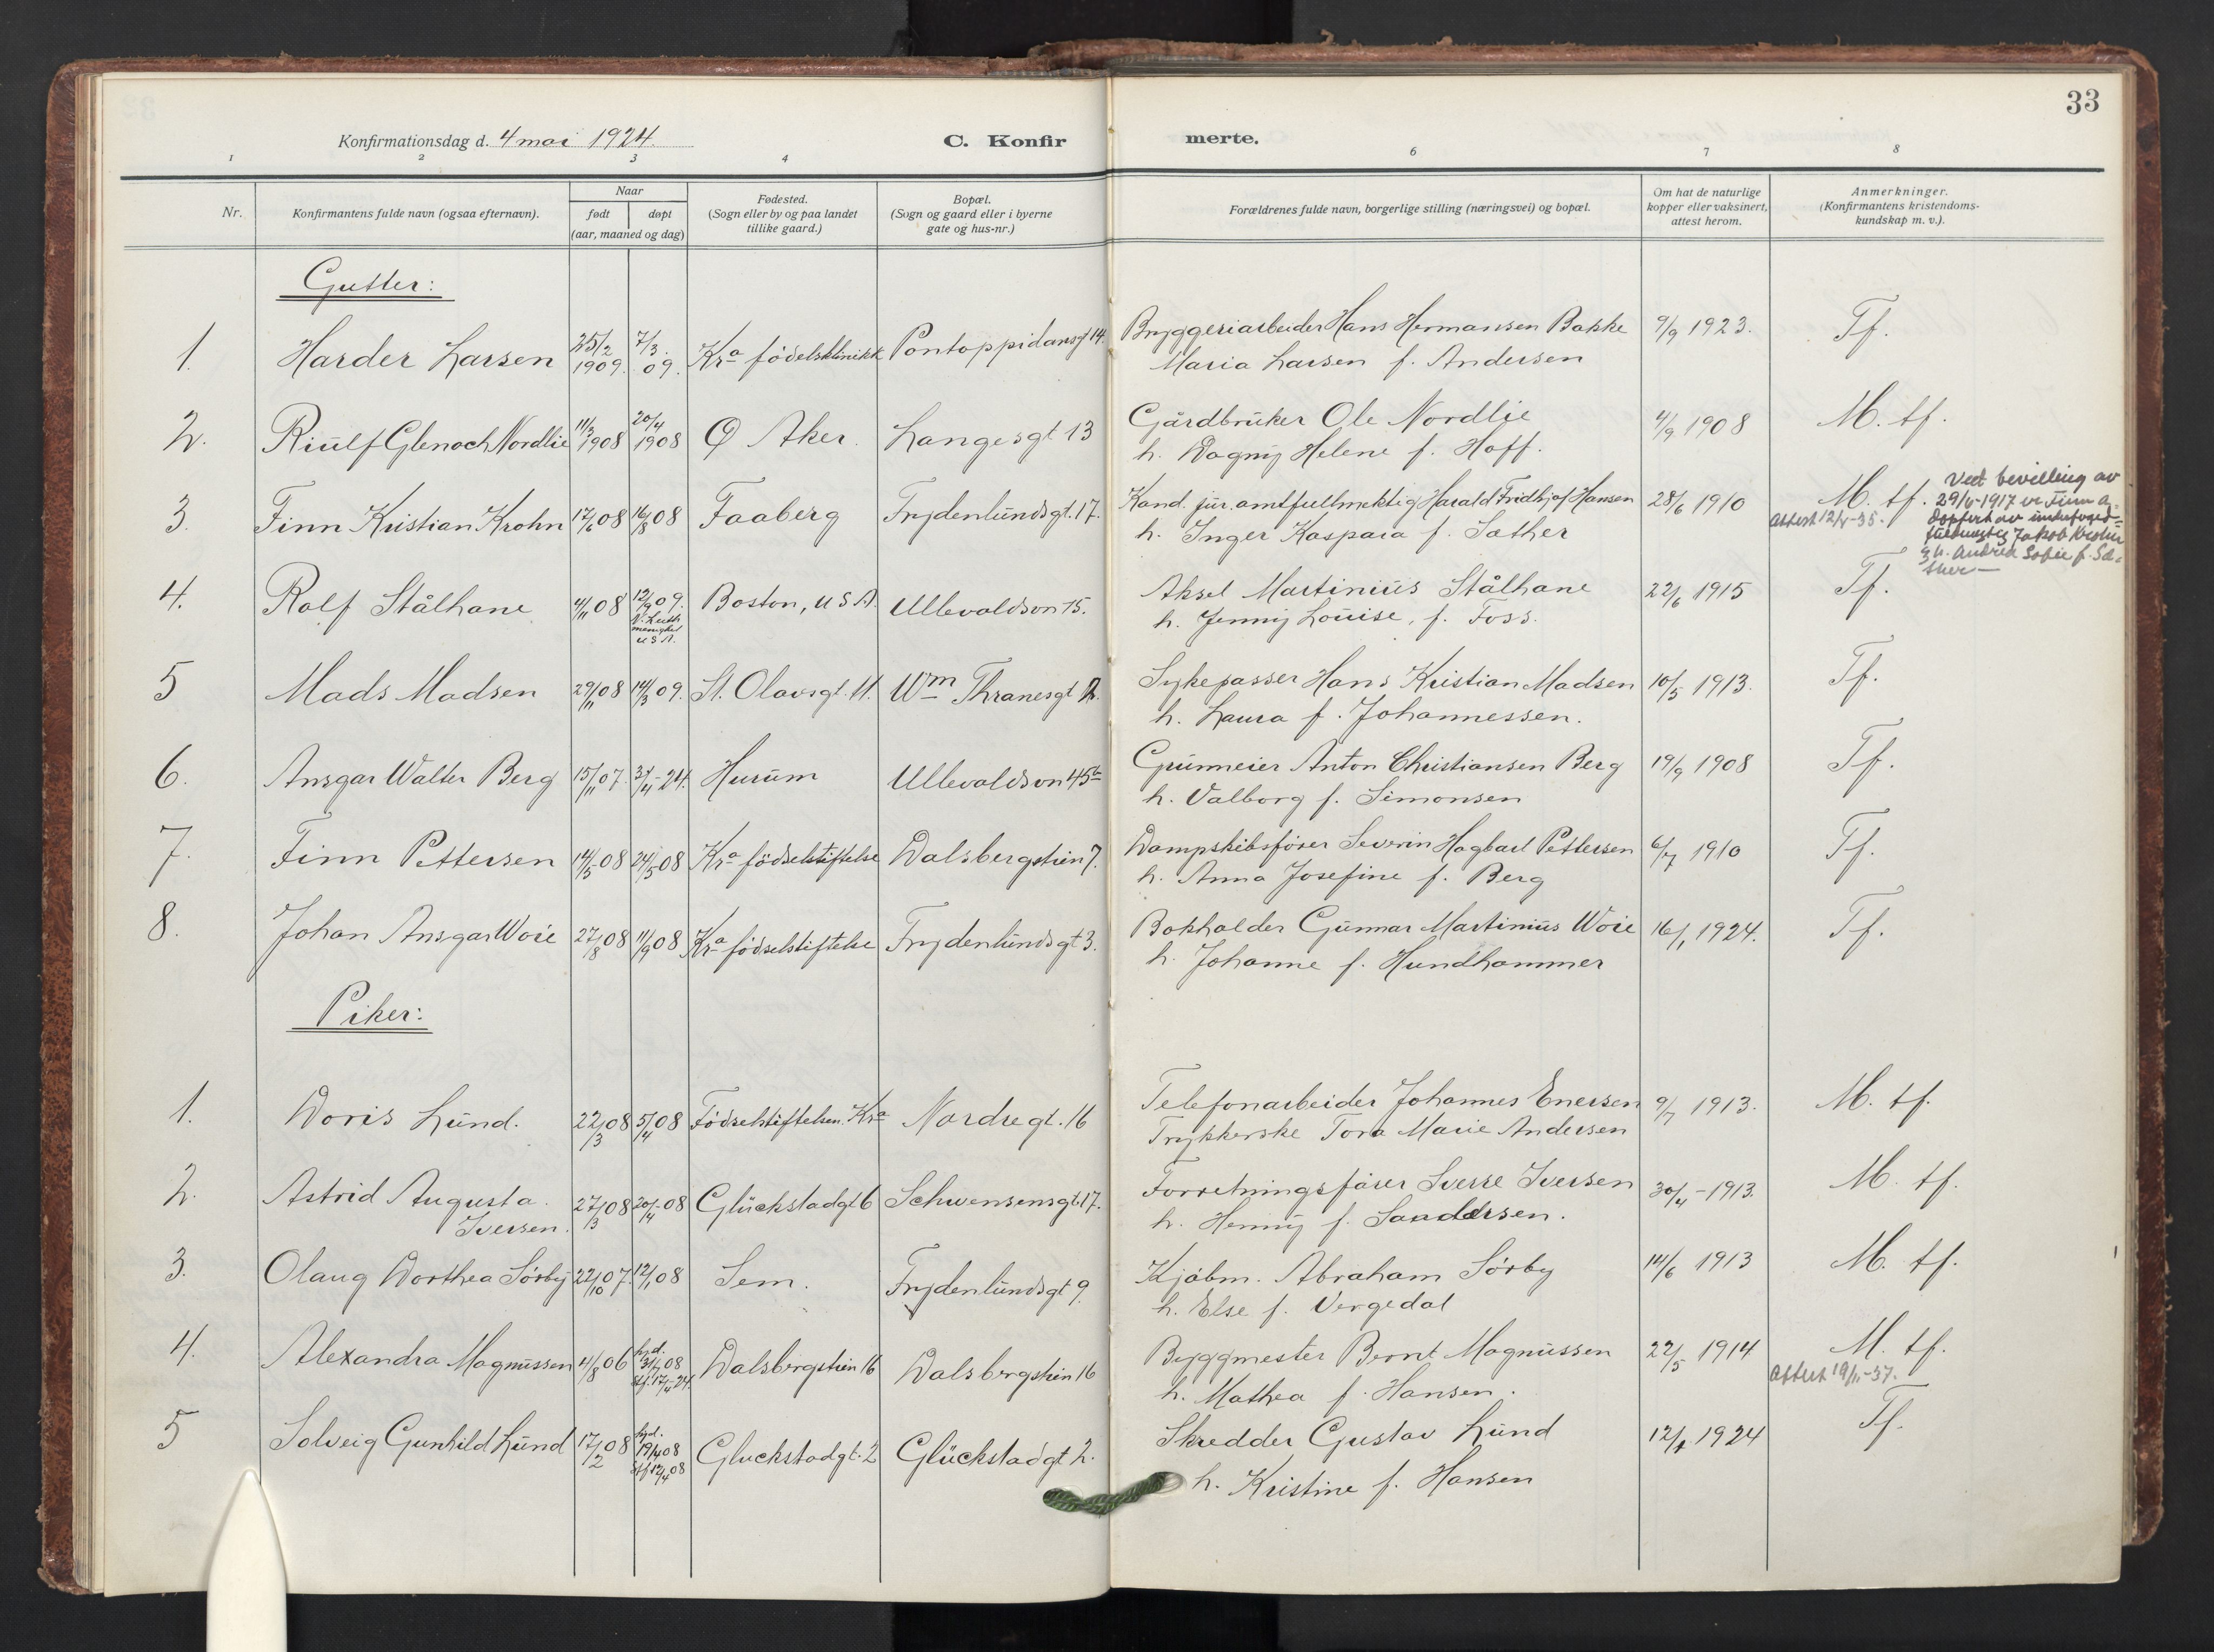 33
Konfirmationsdag d. 4 mai 1924.
C. Konfir
merte.
1 2 3 4 6 7 8
Nr.
Konfirmantens fulde navn (ogsaa efternavn).
Naar
født døpt
(aar, maaned og dag)
Fødested.
(Sogn eller by og paa landet
tillike gaard.)
Bopæl.
(Sogn og gaard eller i byerne
gate og hus-nr.)
Forældrenes fulde navn, borgerlige stilling (næringsvei) og bopæl.
Om hat de naturlige
kopper eller vaksinert,
attest herom.
Anmerkninger.
(Konfirmantens kristendoms-
kundskap m. v.).
Gutter:
1. Harder Larsen 25/2 1909. 7/3 09. Kra födelsklinikk Pontoppidansgt 14. Bryggeriarbeider Hans Hermansen Bakke 9/9 1923. Tf.
Maria Larsen f. Andersen
2. Riulf Glenoch Nordlie 11/3 1908 20/4 1908 Ø Aker. Langesgt 13 Gårdbruker Ole Nordlie 4/9 1908 M. tf.
h. Dagny Helene f. Hoff.
3. Finn Kristian Krohn 17/6 08 16/8 08 Faaberg Frydenlundsgt. 17. Kand. jur. amtfullmektig Harald Fridtjof Hansen 28/6 1910 M. tf.
h. Inger Kaspara f. Sæther
Attest 12/5-35.
Ved bevilling av
29/5-1917 er Finn a-
doptert av underfoged-
fuldmegtig Jakob Krohn
& h. Andrea Sofie f. Sæ-
ther
4. Rolf Stålhane 4/11 08 12/9 09. Boston, U S A. Ullevoldsvn 15. Aksel Martinius Stålhane 22/6 1915 Tf.
N. Luth.
menighet
U S A.
h. Jenny Louise, f. Foss.
5 Mads Madsen 29/11 08 14/3 09. St. Olavsgt. 11. Wm Thranesgt 2. Sykepasser Hans Kristian Madsen 10/5 1913. Tf.
h. Laura f. Johannessen.
6. Ansgar Walter Berg 15/11 07. 3/4-24. Hurum Ullevoldsvn 45b Grünmeier Anton Christiansen Berg 19/9 1908 Tf.
h. Valborg f. Simonsen
7. Finn Pettersen 14/5 08 24/5 08 Kra födselstiftelse Dalsbergstien 7. Dampskibsförer Severin Hagbart Pettersen 6/7 1910 Tf.
h. Anna Josefine f. Berg
8. Johan Ansgar Woie 27/8 08 11/9 08 Kra födselstiftelse Frydenlundsgt 3. Bokholder Gunnar Martinius Woie 16/1 1924. Tf.
h. Johanne f. Hundhammer
Piker:
1. Doris Lund. 22/3 08 5/4 08 Födselstiftelsen. Kra Nordregt. 16 Telefonarbeider Johannes Enersen 9/7 1913. M. tf.
Trykkerske Tora Marie Andersen
2. Astrid Augusta 27/3 08 20/4-08 Glückstadgt 6 Schwensensgt. 17. Forretningsförer Sverre Iversen 30/4-1913. M. tf.
Iversen.
h. Henny f. Sandersen.
3. Olaug Dorthea Sörby 22/10 07. 12/1 08 Sem. Frydenlundsgt 9. Kjöbm. Abraham Sörby 14/6 1913 M. tf.
h. Else f. Vergedal
4. Alexandra Magnussen 4/8 06 hjd. Dalsbergstien 16 Dalsbergstien 16 Byggmester Bernt Magnussen 22/5 1914 M. tf.
h. Mathea f. Hansen.
Attest 19/11-37.
5 Solveig Gunhild Lund 17/2 08 hjd. Gluckstadgt. 2 Glückstadgt 2. Skredder Gustav Lund 12/1 1924 Tf.
h. Kristine f. Hansen